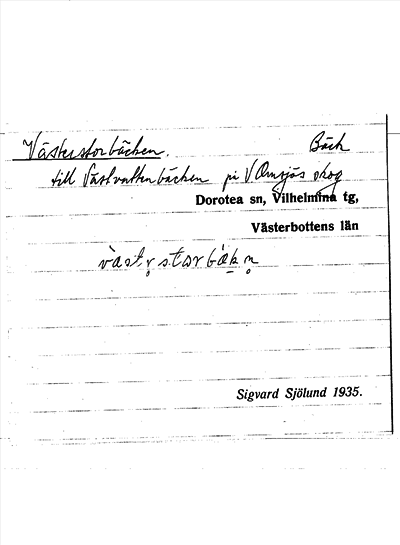 Västerstorbäcken. Bäck
till Västvattenbäcken på V Ormsjös skog
Dorotea sn, Vilhelmina tg,
Västerbottens län
väst̥r storbäk̥n
Sigvard Sjölund 1935.